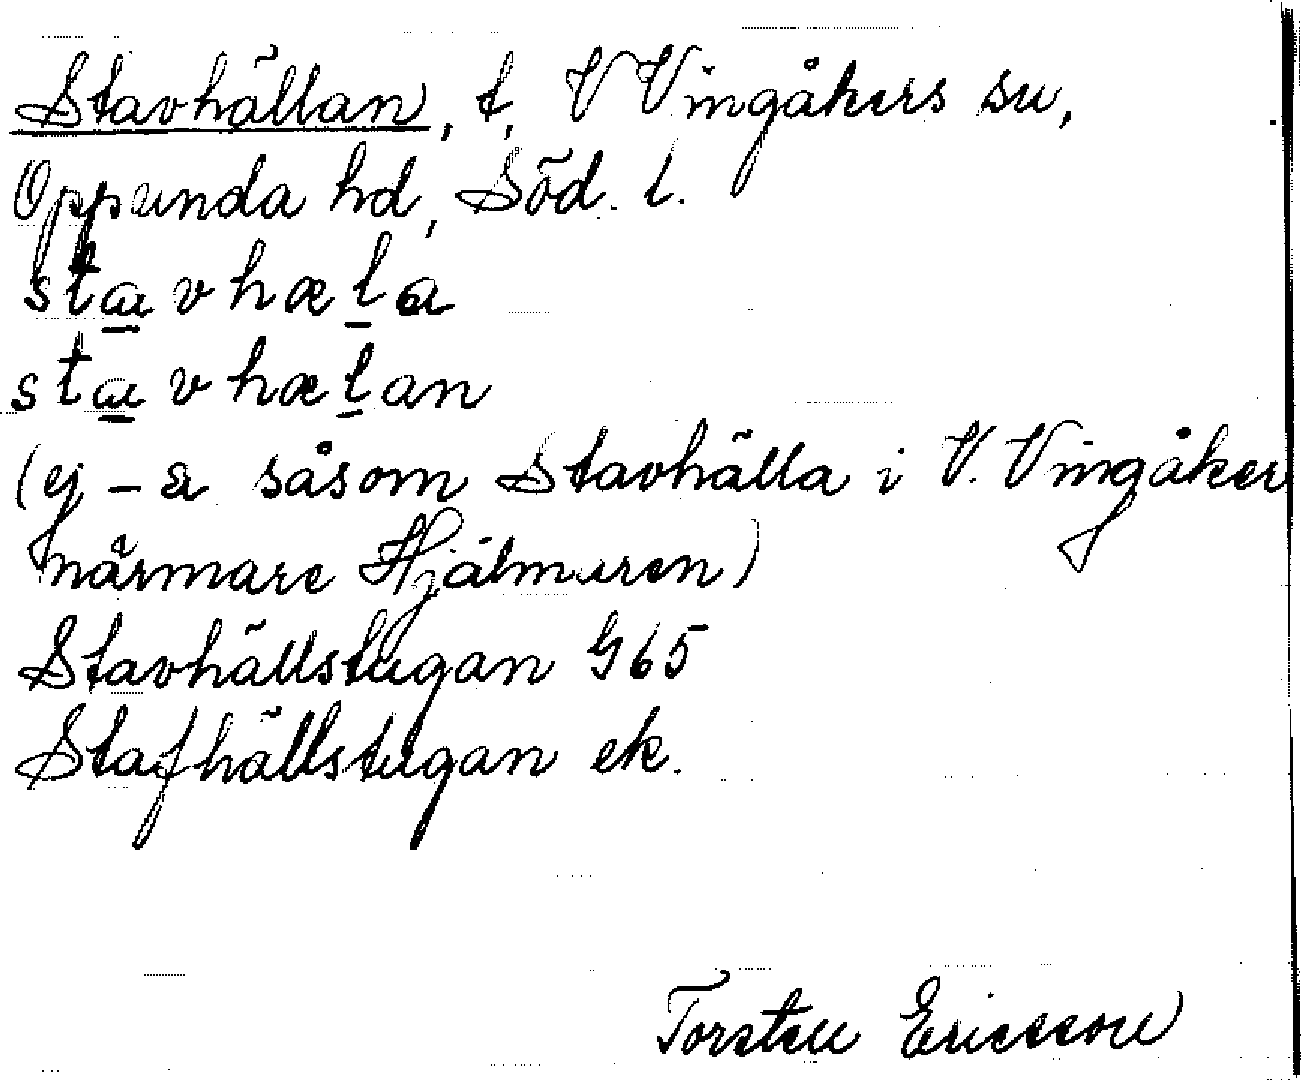 Stavhällan, t, V Vingåkers sn,
Oppunda hd, Söd. l.
stɑ̲vhæl̲a
stɑ̲vhæl̲an
(ej – a såsom Stavhälla i V. Vingåker
närmare Hjälmaren)
Stavhällstugan G 65
Stafhällstugan ek.
Torsten Ericsson